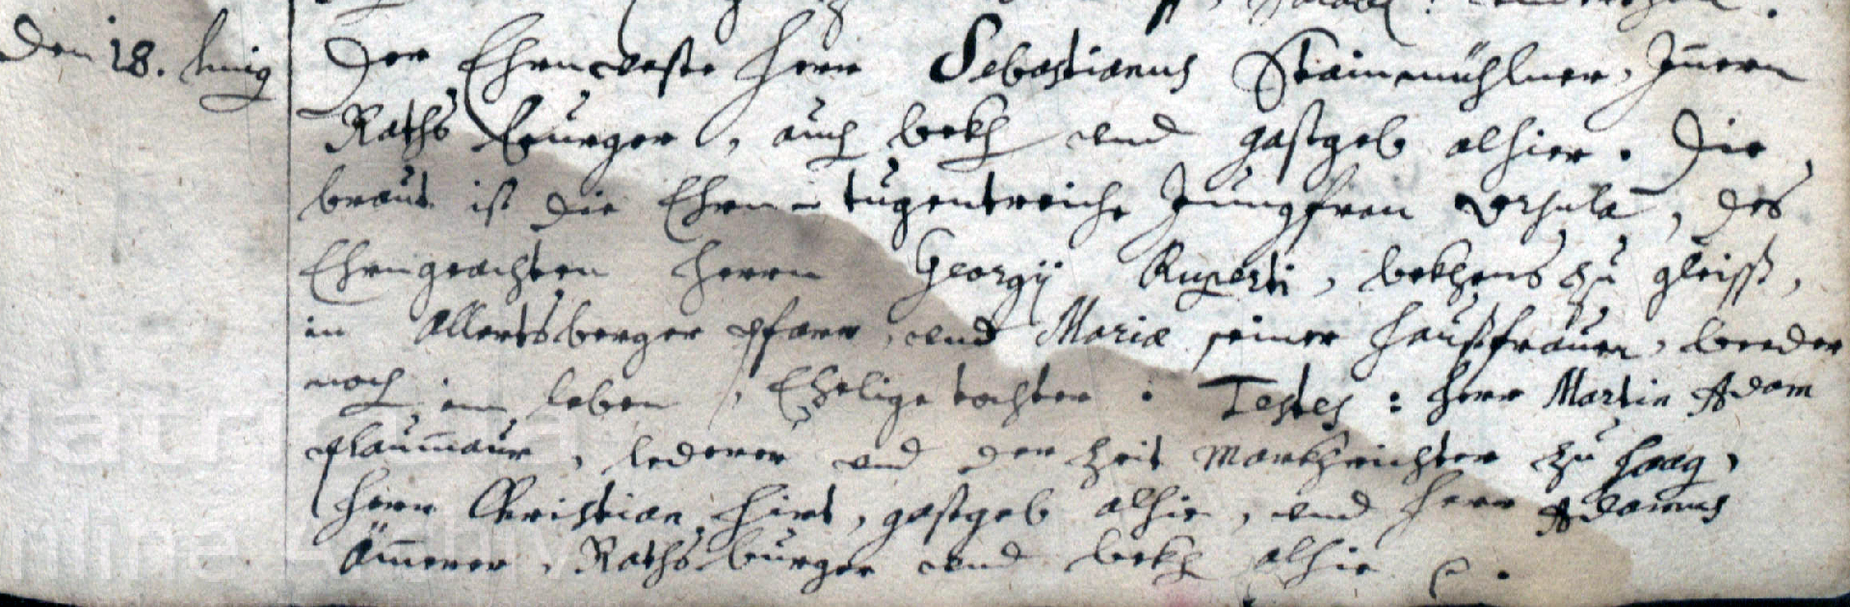 den 18. Junij
Der Ehrnveste Herr Sebastianus Stainmühlner, Inern
Raths burger, auch bekh und gastgeb alhier. Die
braut ist die Ehrn- tugentreiche Jungfrau Ursula, des
Ehrngeachten Herrn Georgij Ruperti, bekhens zu gleiss,
in Allertsberger Pfarr, und Mariæ seiner haussfrauen, beeder
noch im leben, Ehelige tochter: Testes: herr Martin Adam
Pflaumaur, lederer und der Zeit Markhrichter zu Haag,
Herr Christian Hirt, gastgeb alhie, und Herr Adamus
Ämerer, Raths burger und bekh alhie